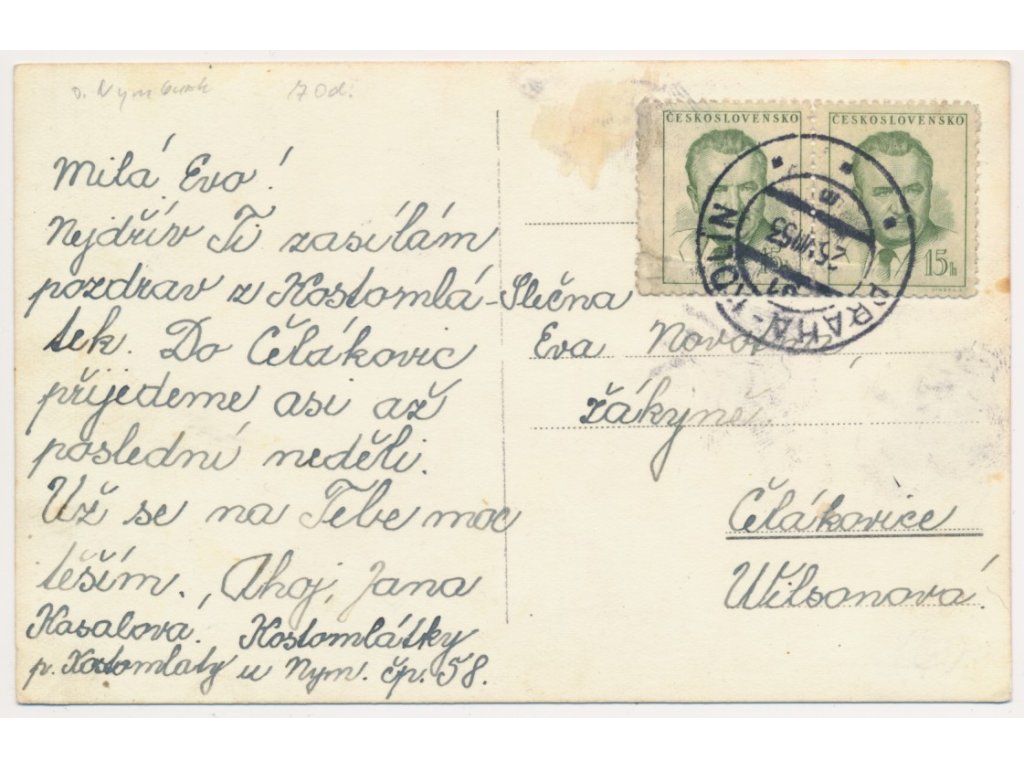 o. Nymburk 70d.
Milá Evo!
Nejdřív Ti zasílám
pozdrav z Kostomlá-
tek. Do Čelákovic
přijedeme asi až
poslední neděli.
Už se na Tebe moc
těším. Ahoj, Jana
Kasalová. Kostomlátky
p. Kostomlaty u Nym. čp. 58.
ČESKOSLOVENSKO
ČESKOSLOVENSKO
15h
PRAHA-KOLÍN
Slečna
Eva Novotná,
žákyně
Čelákovice
Wilsonová.